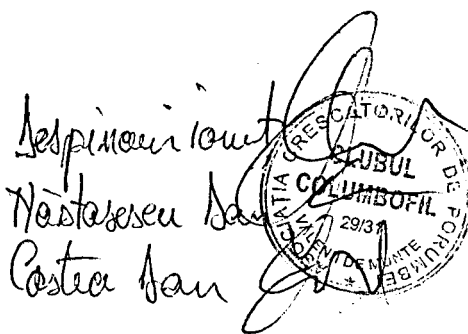 Despinoiu Ionut
Năstasescu Dan
Costea Dan
ASOCIATIA CRESCATORILOR DE PORUMBEI
CLUBUL
COLUMBOFIL
29/31
VALENI DE MUNTE